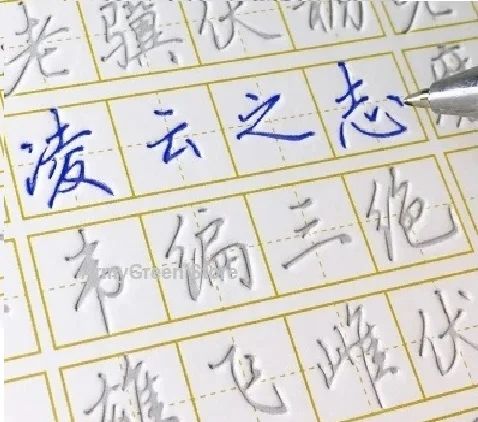 老骥伏枥
凌云之志
韦编三绝
myGreen Store
雄飞雌伏